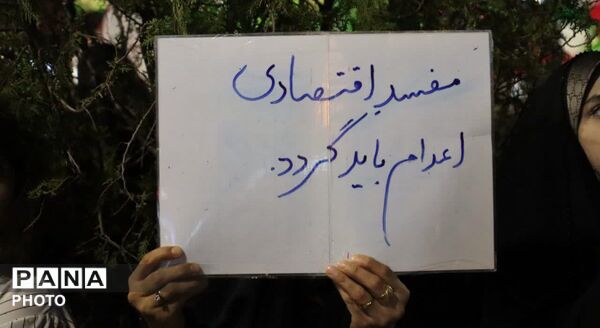 مفسد اقتصادی
اعدام باید گردد.
PANA
PHOTO